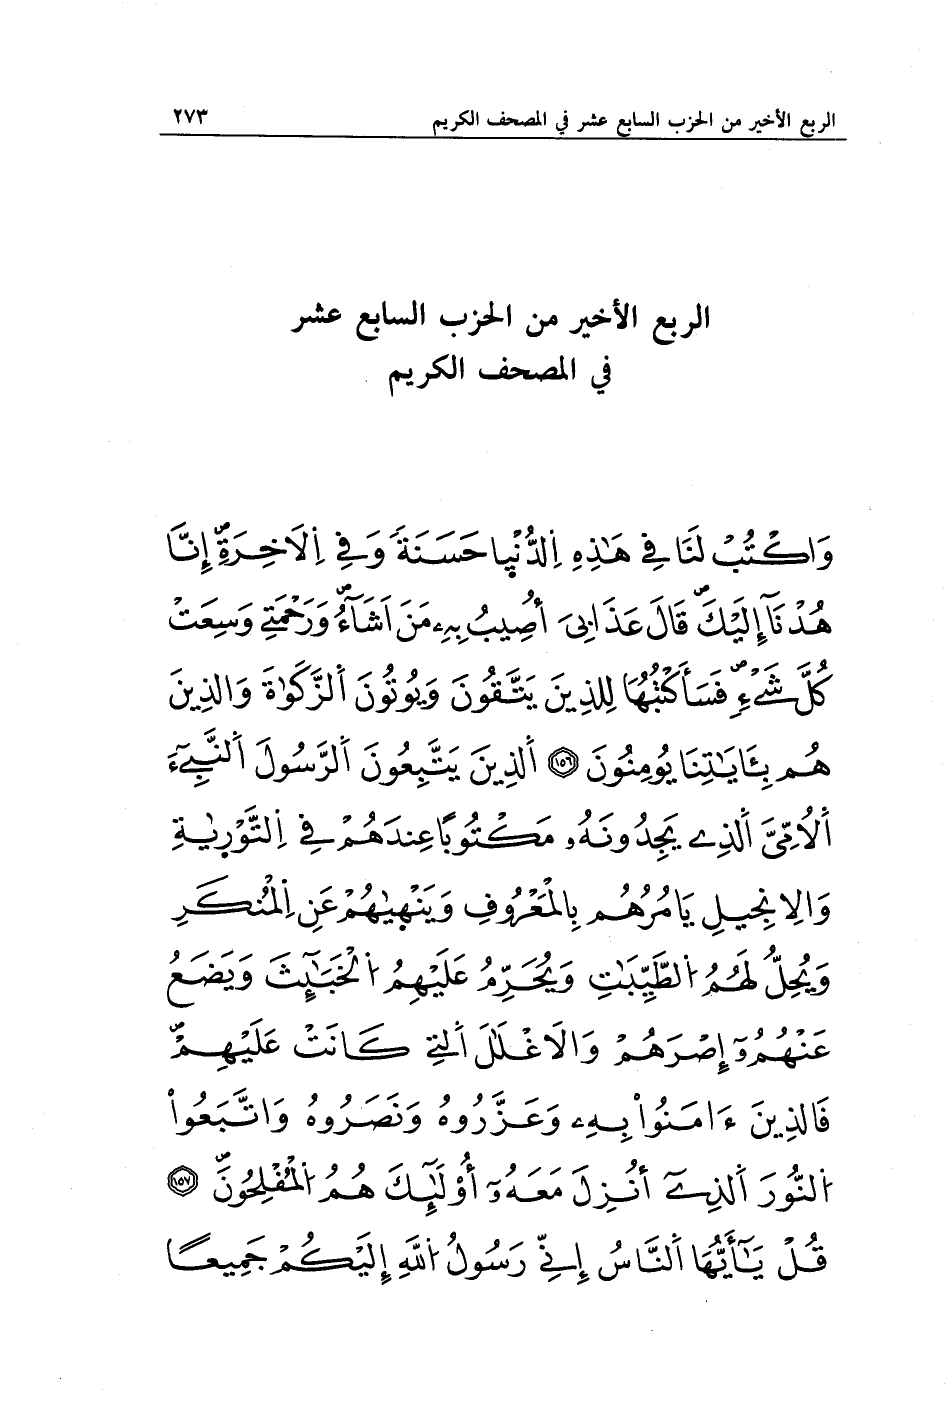 الربع الأخير من الحزب السابع عشر في المصحف الكريم ٢٧٣
الربع الأخير من الحزب السابع عشر
في المصحف الكريم
وَاكْتُبْ لَنَا فِي هَٰذِهِ اِ۬لدُّنْيِا حَسَنَةً وَفِي اِ۬لَاخِرَةِۖ إِنَّا
هُدْنَآ إِلَيْكَۖ قَالَ عَذَابِيَ أُصِيبُ بِهِۦ مَنَ اَشَآءُۖ وَرَحْمَتِے وَسِعَتْ
كُلَّ شَےْءٖۖ فَسَأَكْتُبُهَا لِلذِينَ يَتَّقُونَ وَيُوتُونَ اَ۬لزَّكَوٰةَ وَالذِينَ
هُم بِـَٔايَٰتِنَا يُومِنُونَ ١٥٦ اَ۬لذِينَ يَتَّبِعُونَ اَ۬لرَّسُولَ اَ۬لنَّبِےٓءَ
اَ۬لُامِّيَّ اَ۬لذِے يَجِدُونَهُۥ مَكْتُوباً عِندَهُمْ فِي اِ۬لتَّوْر۪يٰةِ
وَالِانجِيلِ يَامُرُهُم بِالْمَعْرُوفِ وَيَنْه۪يٰهُمْ عَنِ اِ۬لْمُنكَرِ
وَيُحِلُّ لَهُمُ اُ۬لطَّيِّبَٰتِ وَيُحَرِّمُ عَلَيْهِمُ اُ۬لْخَبَٰٓئِثَ وَيَضَعُ
عَنْهُمُۥٓ إِصْرَهُمْ وَالَاغْلَٰلَ اَ۬لتِے كَانَتْ عَلَيْهِمْۖ
فَالذِينَ ءَامَنُواْ بِهِۦ وَعَزَّرُوهُ وَنَصَرُوهُ وَاتَّبَعُواْ
اُ۬لنُّورَ اَ۬لذِےٓ أُنزِلَ مَعَهُۥٓ أُوْلَٰٓئِكَ هُمُ اُ۬لْمُفْلِحُونَۖ ١٥٧
قُلْ يَٰٓأَيُّهَا اَ۬لنَّاسُ إِنِّے رَسُولُ اُ۬للَّهِ إِلَيْكُمْ جَمِيعاً